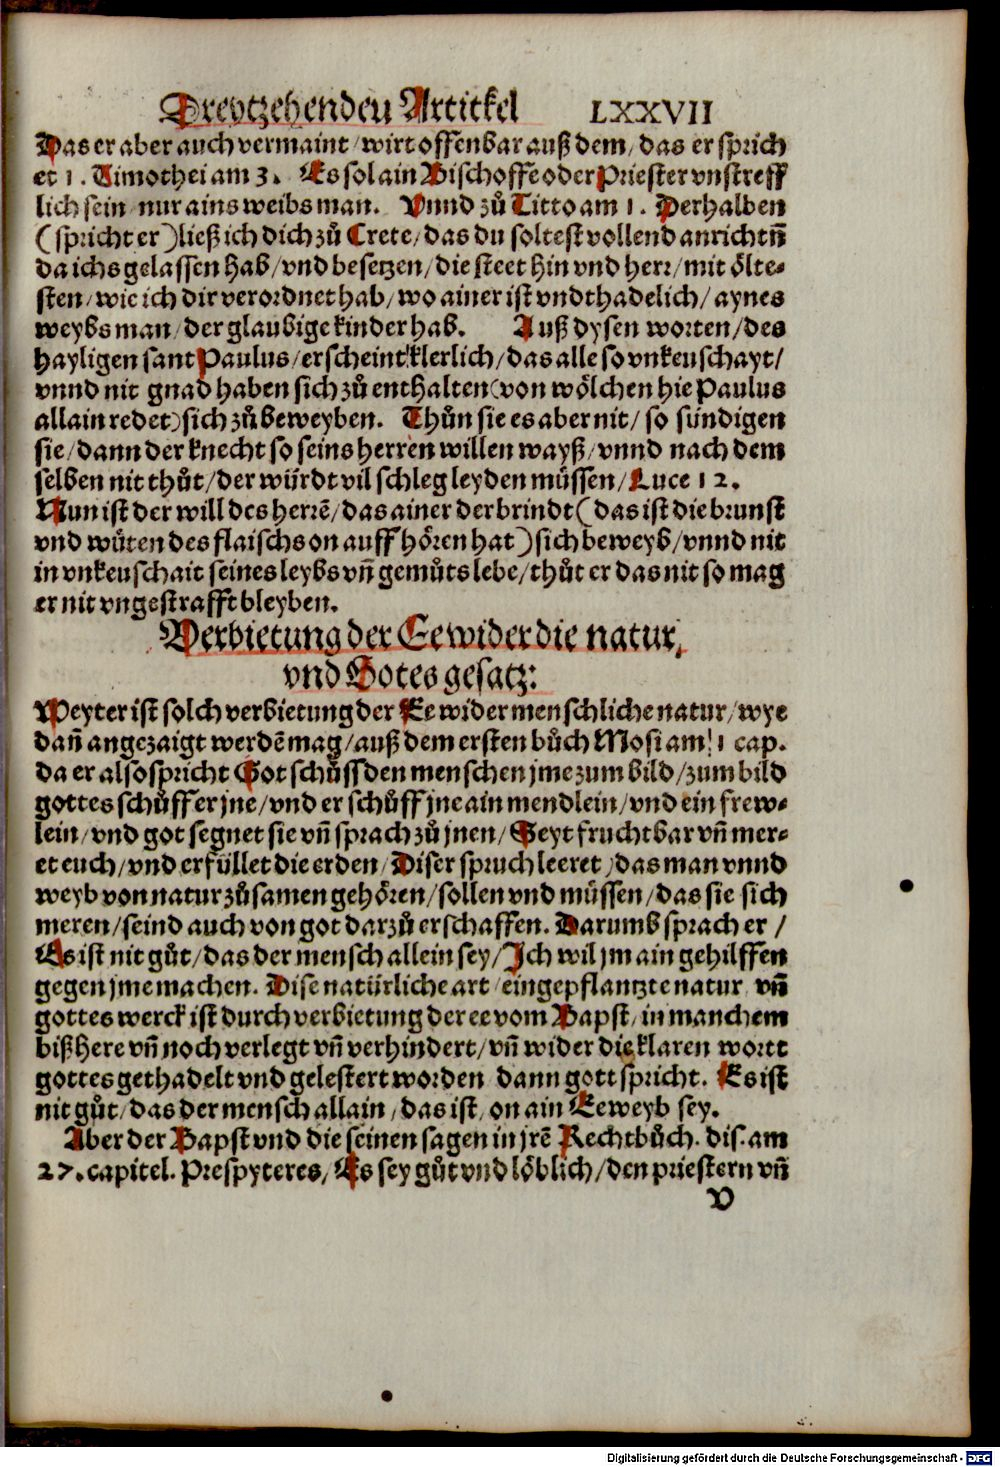 Dreytzehenden Artickel LXXVII
Das er aber auch vermaint / wirt offenbar auß dem / das er sprich
et 1. Timothei am 3. Es sol ain Bischoff eoder Priester vnstreff
lich sein / nur ains weibs man. Vnnd zů Titto am 1. Derhalben
( spricht er ) ließ ich dich zů Crete / das du soltest vollend anrichtñ
da ichs gelassen hab / vnd besetzen / die steet hin vnd herr / mit ölte⸗
sten / wie ich dir verordnet hab / wo ainer ist vndthadelich / aynes
weybs man / der glaubige kinder hab. Auß dysen worten / des
hayligen sant Paulus / erscheint klerlich / das alle so vnkeuschayt /
vnnd nit gnad haben sich zů enthalten ( von wölchen hie Paulus
allain redet ) sich zů beweyben. Thůn sie es aber nit / so sündigen
sie / dann der knecht so seins herren willen wayß / vnnd nach dem
selben nit thůt / der würdt vil schleg leyden müssen / Luce 12.
Nun ist der will des herrẽ / das ainer der brindt ( das ist die brunst
vnd wüten des flaischs on auff hören hat ) sich beweyb / vnnd nit
in vnkeuschait seines leybs vñ gemůts lebe / thůt er das nit so mag
er nit vngestrafft bleyben.
Verbietung der Ee wider die natur,
vnd Gotes gesatz:
Weyter ist solch verbietung der Ee wider menschliche natur / wye
dañ angezaigt werdẽ mag / auß dem ersten bůch Mosi am 1 cap.
da er also spricht Got schůff den menschen jme zum bild / zum bild
gottes schůff er jne / vnd er schůff jne ain mendlein / vnd ein frew⸗
lein / vnd got segnet sie vñ sprach zů jnen / Seyt fruchtbar vñ mer⸗
et euch / vnd erfüllet die erden / Diser spruch leeret / das man vnnd
weyb von natur zůsamen gehören / sollen vnd müssen / das sie sich
meren / seind auch von got darzů erschaffen. Darumb sprach er /
Es ist nit gůt / das der mensch allein sey / Ich wil jm ain gehilffen
gegen jme machen. Dise natürliche art / eingepflantzte natur / vñ
gottes werck ist durch verbietung der ee vom Bapst / in manchem
biß here vñ noch verlegt vñ verhindert / vñ wider die klaren wortt
gottes gethadelt vnd gelestert worden / dann gott spricht. Es ist
nit gůt / das der mensch allain / das ist / on ain Eeweyb sey.
Aber der Bapst vnd die seinen sagen in jrẽ Rechtbůch. dis. am
27. capitel. Prespyteres / Es sey gůt vnd löblich / den priestern vñ
V
Digitalisierung gefördert durch die Deutsche Forschungsgemeinschaft - DFG